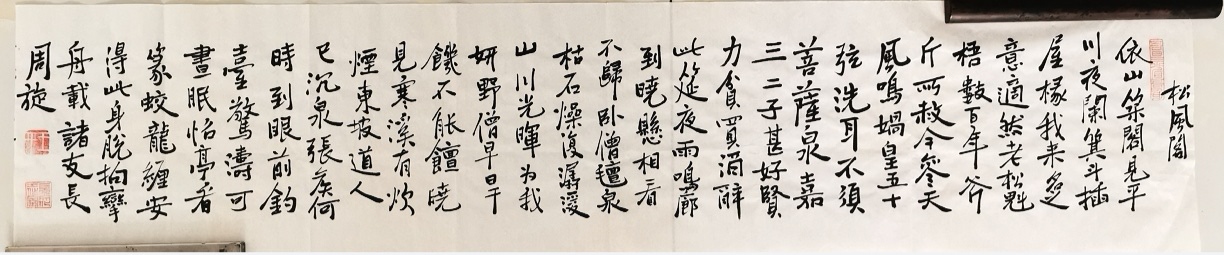 松風閣
依山築閣見平
川夜闌箕斗插
屋椽我来名之
意適然老松魁
梧數百年斧
斤所赦今參天
風鳴媧皇五十
弦洗耳不須
菩薩泉嘉
三二子甚好賢
力貧買酒醉
此筵夜雨鳴廊
到曉懸相看
不歸卧僧氊泉
枯石燥復潺湲
山川光暉为我
妍野僧早旱干
饑不能饘曉
見寒溪有炊
煙東坡道人
已沉泉張侯何
時到眼前釣
臺驚濤可
晝眠怡亭看
篆蛟龍纏安
得此身脱拘攣
舟載諸友長
周旋